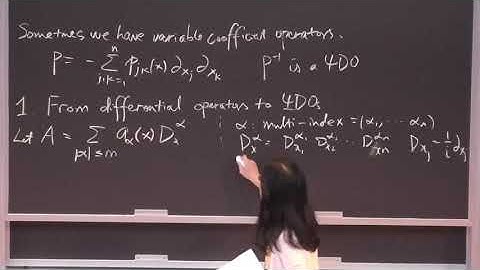 Sometimes we have variable coefficient operators.
P = - ∑_{j,k=1}^{n} p_{jk}(x) ∂_{x_j} ∂_{x_k} P^{-1} is a ΨDO
1. From differential operators to ΨDOs
Let A = ∑_{|α| ≤ m} a_α(x) D_x^α
α: multi-index = (α_1, ⋯ α_n)
D_x^α = D_{x_1}^{α_1} D_{x_2}^{α_2} ⋯ D_{x_n}^{α_n} D_{x_j} = \frac{1}{i} ∂_{x_j}